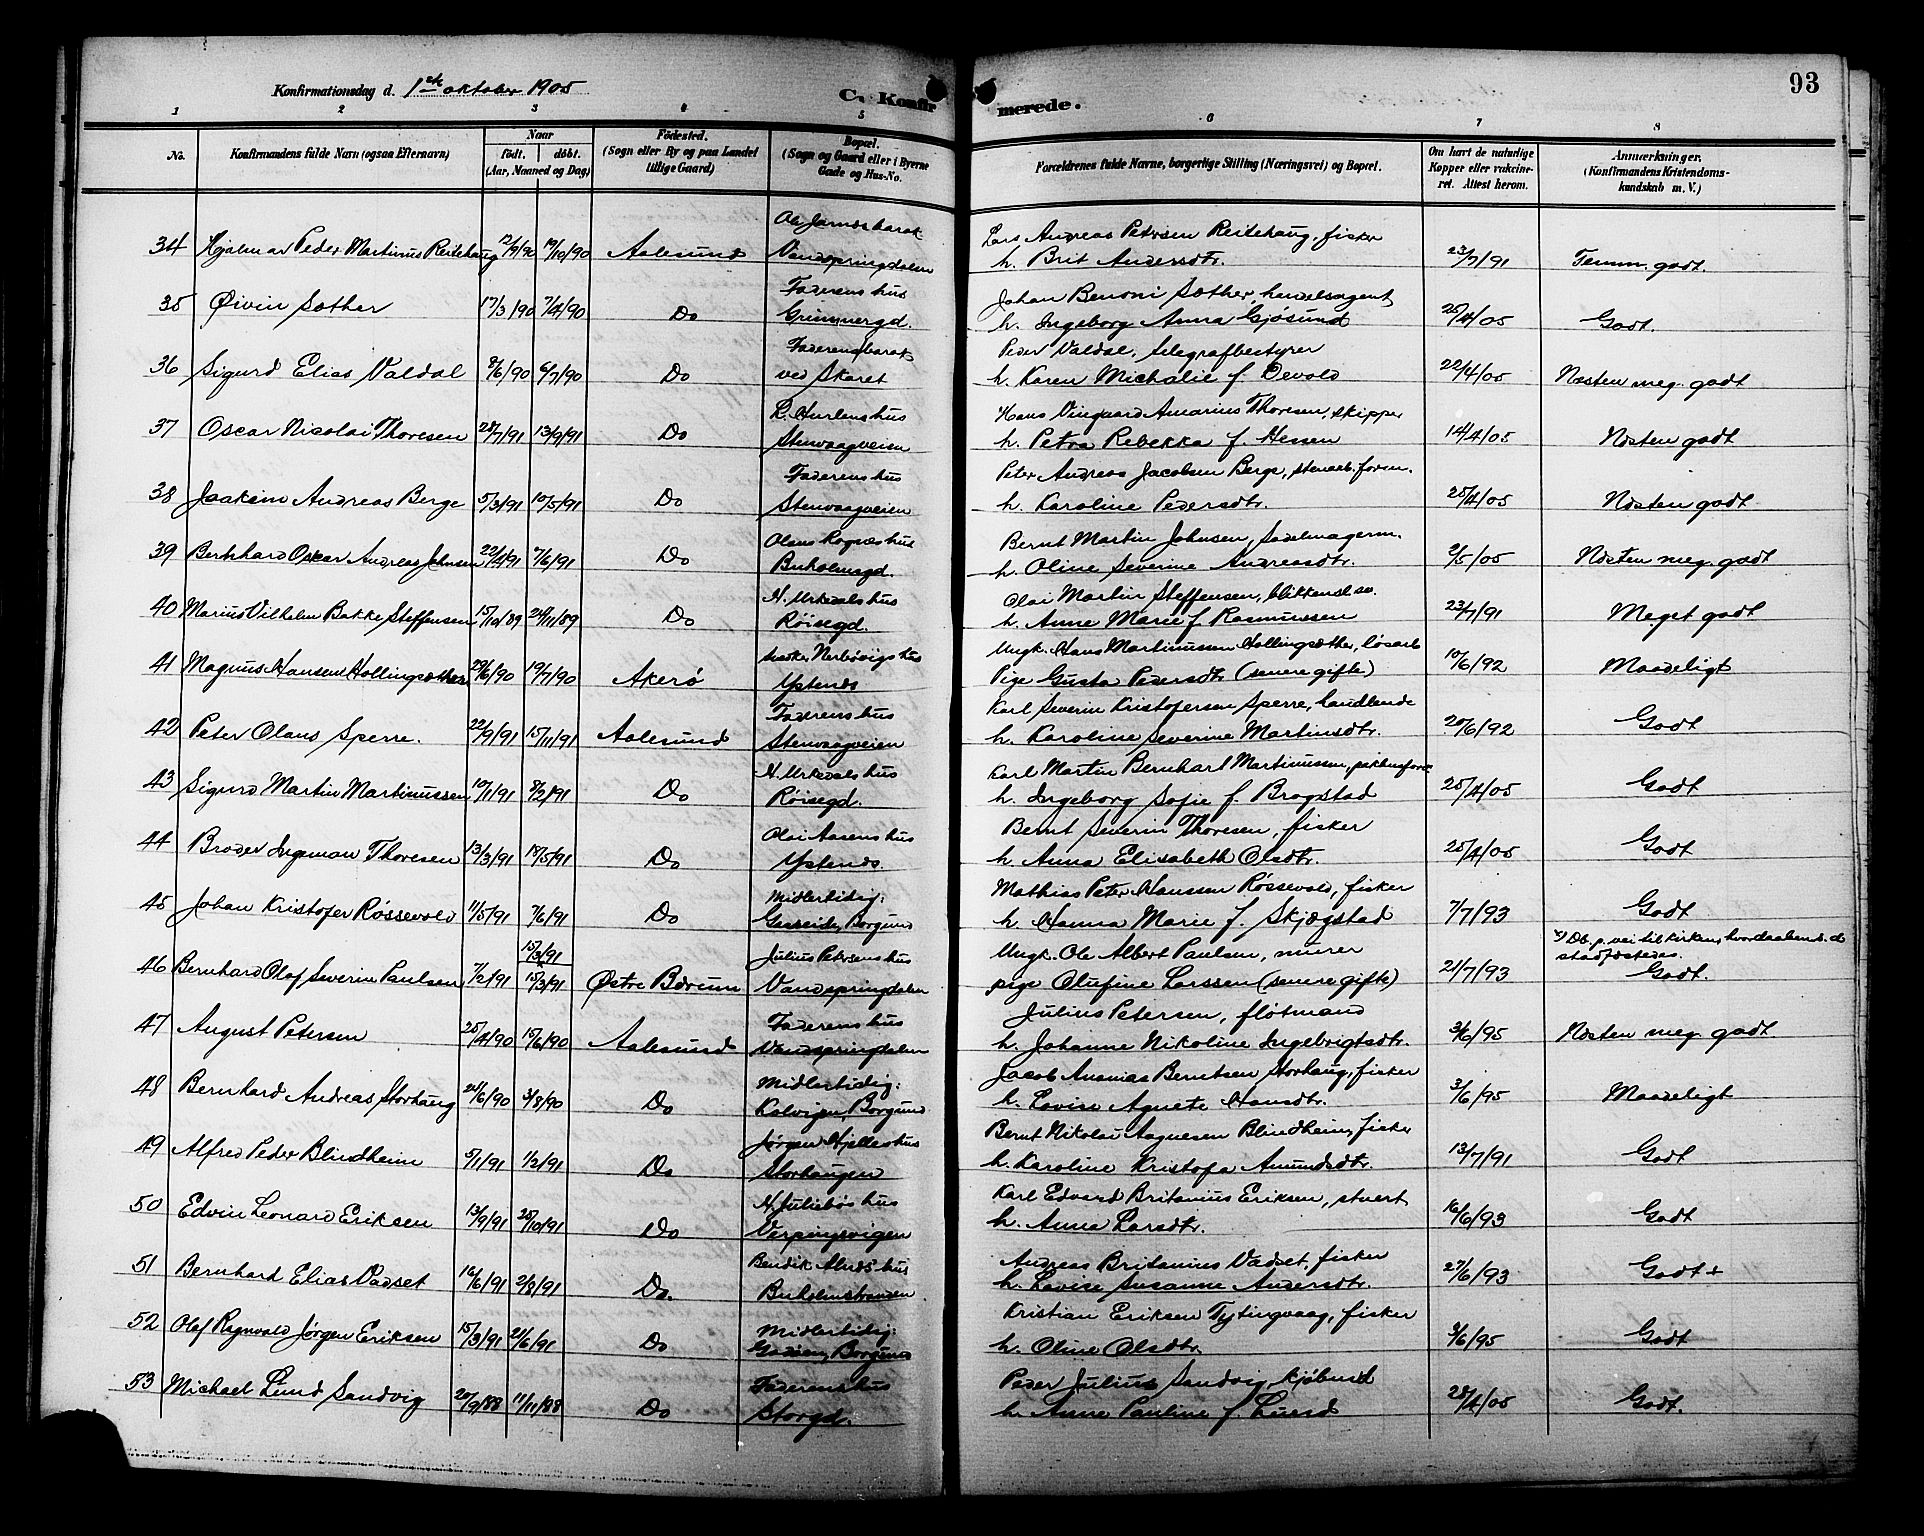 93
Konfirmationsdag d. 1ste oktober 1905
C. Konfirmerede.
1 2 3 4 5 6 7 8
No.
Konfirmandens fulde Navn (ogsaa Efternavn)
Naar
født. døbt.
(Aar, Maaned og Dag)
Fødested.
(Sogn eller By og paa Landet tillige Gaard)
Bopæl.
(Sogn og Gaard eller i Byerne Gade og Hus-No.
Forældrenes fulde Navne, borgerlige Stilling (Næringsvei) og Bopæl.
Om havt de naturlige Kopper eller vakcineret. Attest herom.
Anmærkninger.
(Konfirmandens Kristendomskundskab m. V.)
34 Hjalmar Peder Martinus Reitehaug 12/9/90 19/10/90 Aalesund
Vandspringdalen
Lars Andreas Petersen Reitehaug, fisker
h. Brit Andersdtr. 23/7/91 Temm. godt.
35 Øivin Sæther 17/3/90 7/4/90 Do
Faderens hus
Grimmergd.
Johan Benoni Sæther, handelsagent
h. Ingeborg Anna Gjøsund 25/4/05 Godt.
36 Sigurd Elias Valdal 8/6/90 6/7/90 Do
Faderens barak
ved Skaret
Peder Valdal, telegrafbestyrer
h. Karen Michalie f. Devold 22/4/05 Næsten meg. godt
37 Oscar Nicolai Thoresen 28/7/91 13/9/91 Do
Stenvaagveien
Hans Vingaard Amarius Thoresen, skipper
h. Petra Rebekka f. Hessen 14/4/05 Næsten godt
38 Joakim Andreas Berge 5/3/91 10/5/91 Do
Faderens hus
Stenvaagveien
Peter Andreas Jacobsen Berge, stenarb. form.
h. Karoline Pedersdtr. 25/4/05 Næsten godt
39 Bernhard Oskar Andreas Johnsen 22/4/91 7/6/91 Do
Buholmsgd.
Bernt Martin Johnsen, sadelmagerm.
h. Oline Severine Andreasdtr. 2/5/05 Næsten meg. godt
40 Marius Vilhelm Bakke Steffensen 15/10/89 24/11/89 Do
N. Urkedals hus
Røisegd.
Olai Martin Steffensen, blikkensl. sv.
h. Anne Marie f. Rasmussen 23/7/91 Meget godt
41 Magnus Hansen Hollingsæther 29/6/90 19/7/90 Akerø
Ystenes
Ungk. Hans Martinussen Hollingsæther, løsarb
Pige Gusta Pedersdtr (senere gifte) 10/6/92 Maadeligt
42 Peter Olaus Sperre. 22/9/91 15/11/91 Aalesund
Faderens hus
Stenvaagveien
Karl Severin Kristofersen Sperre, handlende
h. Karoline Severine Martinsdtr. 20/6/92 Godt
43 Sigurd Martin Martinussen 10/1/91 8/2/91 Do
N. Urkedals hus
Røisegd.
Karl Martin Bernhart Martinussen, pakhusform
h. Ingeborg Sofie f. Brogstad 25/4/05 Godt
44 Broder Ingman Thoresen 13/3/91 18/5/91 Do
Olai Aasens hus
Ystenes.
Bernt Severin Thoresen, fisker
h. Anna Elisabeth Olsdtr. 25/4/05 Godt
45 Johan Kristofer Røssevold 11/5/91 7/6/91 Do
Midlertidig:
Gaaseide, Borgund
Mathias Peter Hanssen Røssevold, fisker
h. Hanna Marie f. Skjægstad 7/7/93 Godt
46 Bernhard Olaf Severin Paulsen 7/2/91 15/3/91 15/3/91 Østre Bærum
Julius Petersens hus
Vandspringdalen
Ungk. Ole Albert Paulsen, murer
pige Olufine Larssen (senere gifte) 21/7/93
x) Db. p. vei til kirken, hvordaaben d. d.
stadfæstedes.
Godt.
47 August Petersen 25/4/90 15/6/90 Aalesund
Faderens hus
Vandspringdalen
Julius Petersen, fløtmand
h. Johanne Nikoline Ingebrigtsdtr. 3/6/95 Næsten meg. godt
48 Bernhard Andreas Storhaug 25/6/90 3/8/90 Do
Midlertidig:
Kalvigen, Borgund
Jacob Ananias Berntsen Storhaug, fisker
h. Lovise Agnete Hansdtr. 3/6/95 Maadeligt
49 Alfred Peder Blindheim 5/1/91 1/2/91 Do
Jørgen Hjelles hus
Storhaugen
Bernt Nikolai Aagnesen Blindheim, fisker
h. Karoline Kristofa Amundsdtr. 13/7/91 Godt
50 Edvin Leonard Eriksen 13/9/91 25/10/91 Do
N. Juliebøs hus
Verpingsvigen
Karl Edvard Britanius Eriksen, stuert
h. Anna Larsdtr. 16/6/93 Godt
51 Bernhard Elias Vadset 16/6/91 2/8/91 Do.
Buholmstranden
Andreas Britanius Vadset, fisker
h. Lovise Susanne Andersdtr. 27/6/93 Godt +
52 Olaf Ragnvald Jørgen Eriksen 15/3/91 21/6/91 Do
Midlertidig:
Borgund
Kristian Eriksen Tytingvaag, fisker
h. Oline Olsdtr. 3/6/95 Godt
53 Michael Lund Sandvig 20/9/88 11/11/88 Do
Faderens hus
Storgd.
Peder Julius Sandvig kjøbmd
h. Anne Pauline f. Lund 28/4/05 Godt.